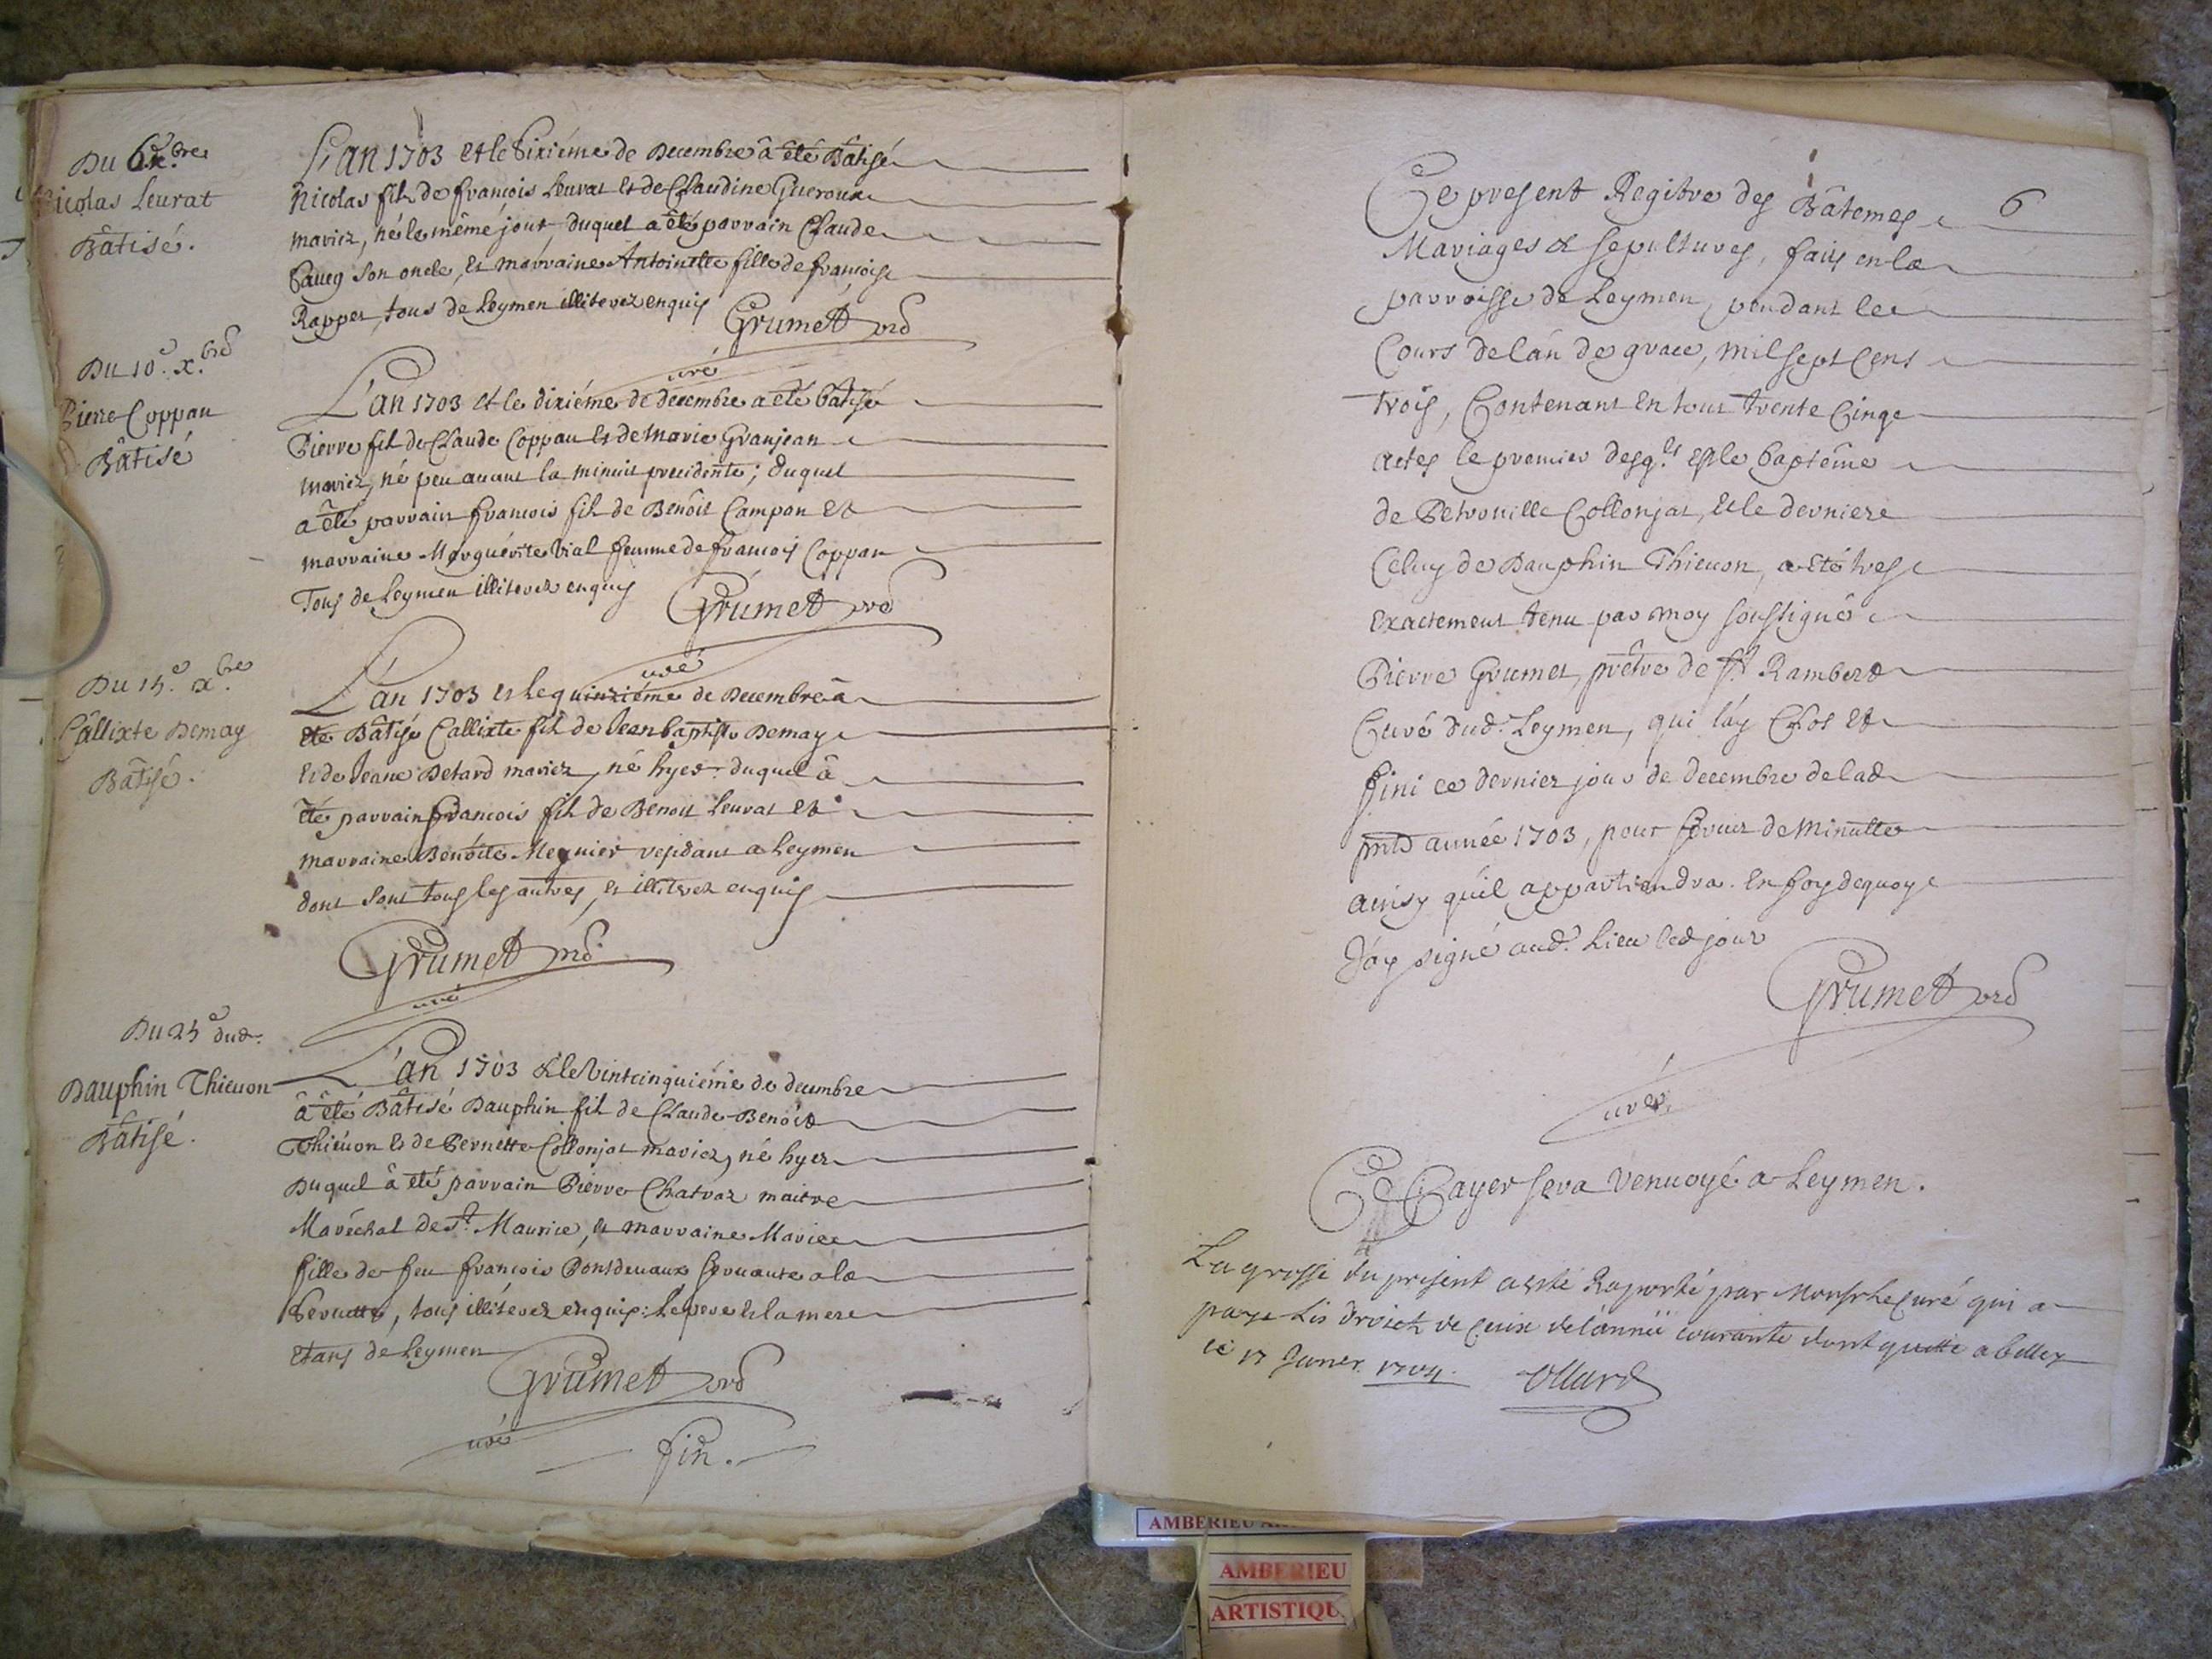 Du 6e. xbre.
Nicolas Leurat
Bâtisé.
L'an 1703 et le Sixiéme de Decembre â êté Bâtisé
Nicolas fils de francois Leurat et de Claudine Gueroux
mariez, né le même jour, duquel a êté parrain Claude
son oncle, et marraine Antoinette fille de francoise
Rappet, tous de Leymen illiterez enquis Grumet
curé
Du 10e. x.bre
Pierre Coppau
Bâtisé
L'an 1703 et le dixiéme de decembre a eté batisé
Pierre fils de Claude Coppau et de Marie Granjean
mariez, né peu avant la minuit precedente; duquel
a êté parrain francois fils de Benôit Campon et
marraine Marguérite Vial femme de francois Coppau
Tous de Leymen illiterez enquis Grumet
curé
Du 15e. xbre.
Câllixte Demay
Bâtisé.
L'an 1703 et le quinziéme de Decembre â
eté Bâtisé Callixte fils de Jean baptiste Demay
et de Jeane Betard mariez, né hyer. duquel â
êté parrain francois fils de Benoit Leurat et
marraine Benôite Megnier residant a Leymen
dont sont tous les autres, et illiterez enquis
Grumet
curé
Du 25e dud.
Dauphin Thieuon
Bâtisé.
L'an 1703 & le Vintcinquiéme de decembre
â êté Bâtisé Dauphin fils de Claude-Benôit
Thieuon et de Pernette Collonjat mariez, né hyer
Duquel â eté parrain Pierre Chatraz maitre
Maréchal de St. Maurice, et marraine Marie
fille de feu francois Pontdeuaux seruante a la
, tous illiterez enquis: le pere et la mere
etans de Leymen
Grumet
curé
fin.
6
Ce present Regitre des Bâtemes
Mariages & sepultures, fais en la
parroisse de Leymen, pendant le
Cours de l'an de grace, mil sept cens
trois, Contenant en tout trente Cinq
actes le premier desq.ls est le baptême
de Petronille Collonjat, et le derniere
Celuy de Dauphin Thieuon, a eté tres
exactement tenu par moy soussigné
Pierre Grumet, prêtre de St Rambert
Curé dud. Leymen, qui l'ay Clos et
fini ce dernier jour de decembre de lad
année 1703, pour seruir de Minutte
ainsy qu'il appartiendra. En foy dequoy
J'ay signé aud. Lieu led jour
Grumet
curé
Ce Cayer sera renuoyé a Leymen.
La grosse du present a esté Raporté par Monsr le curé qui a
paye les droict de l'année courante dont quitte a belley
ce 17 Januier 1704. Ollard
AMBERIEU
AMBERIEU
ARTISTIQU